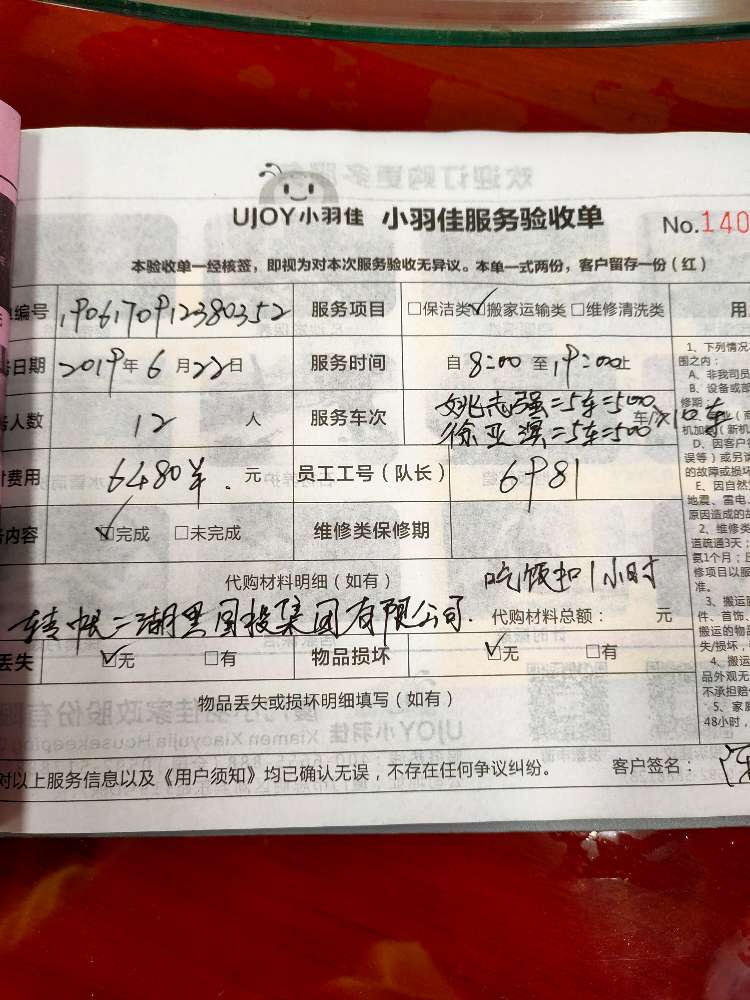 UJOY小羽佳 小羽佳服务验收单 No.140
本验收单一经核签，即视为对本次服务验收无异议。本单一式两份，客户留存一份（红）
编号 190617091238 0352 服务项目 □保洁类 ☑搬家运输类 □维修清洗类 用
日期 2019年6月22日 服务时间 自8:00至19:00止
人数 12 人 服务车次 姚志强=5车=500
徐亚 =5车=500 车/次 10车
费用 6480 元 员工工号（队长） 6981
内容 ☑完成 □未完成 维修类保修期
代购材料明细（如有） 吃饭扣1小时
转帐 国投集团有限公司. 代购材料总额： 元
丢失 ☑无 □有 物品损坏 ☑无 □有
物品丢失或损坏明细填写（如有）
对以上服务信息以及《用户须知》均已确认无误，不存在任何争议纠纷。 客户签名：
1、下列情况
围之内：
A、非我司员
B、设备或部
修期；
D、因客户
误等）或另
的故障或损坏
E、因自然
地震、雷电、
原因造成的
2、维修类
道疏通3天；
氨1个月；
修项目以服
准。
3、搬运
件、首饰、
搬运的物品
失/损坏，
4、搬运
品外观无
不承担赔
5、家庭
48小时，